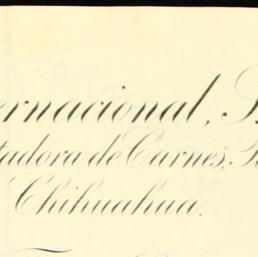 ernacional, S
tadora de Carnes,
Chihuahua.